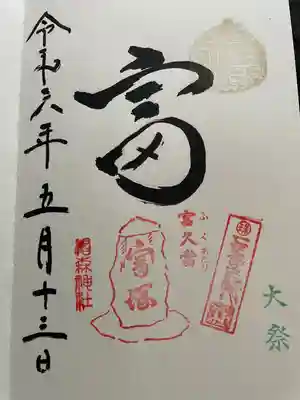 富
富久當
ふくあたり
大祭
富塚
椙森神社
令和六年五月十三日